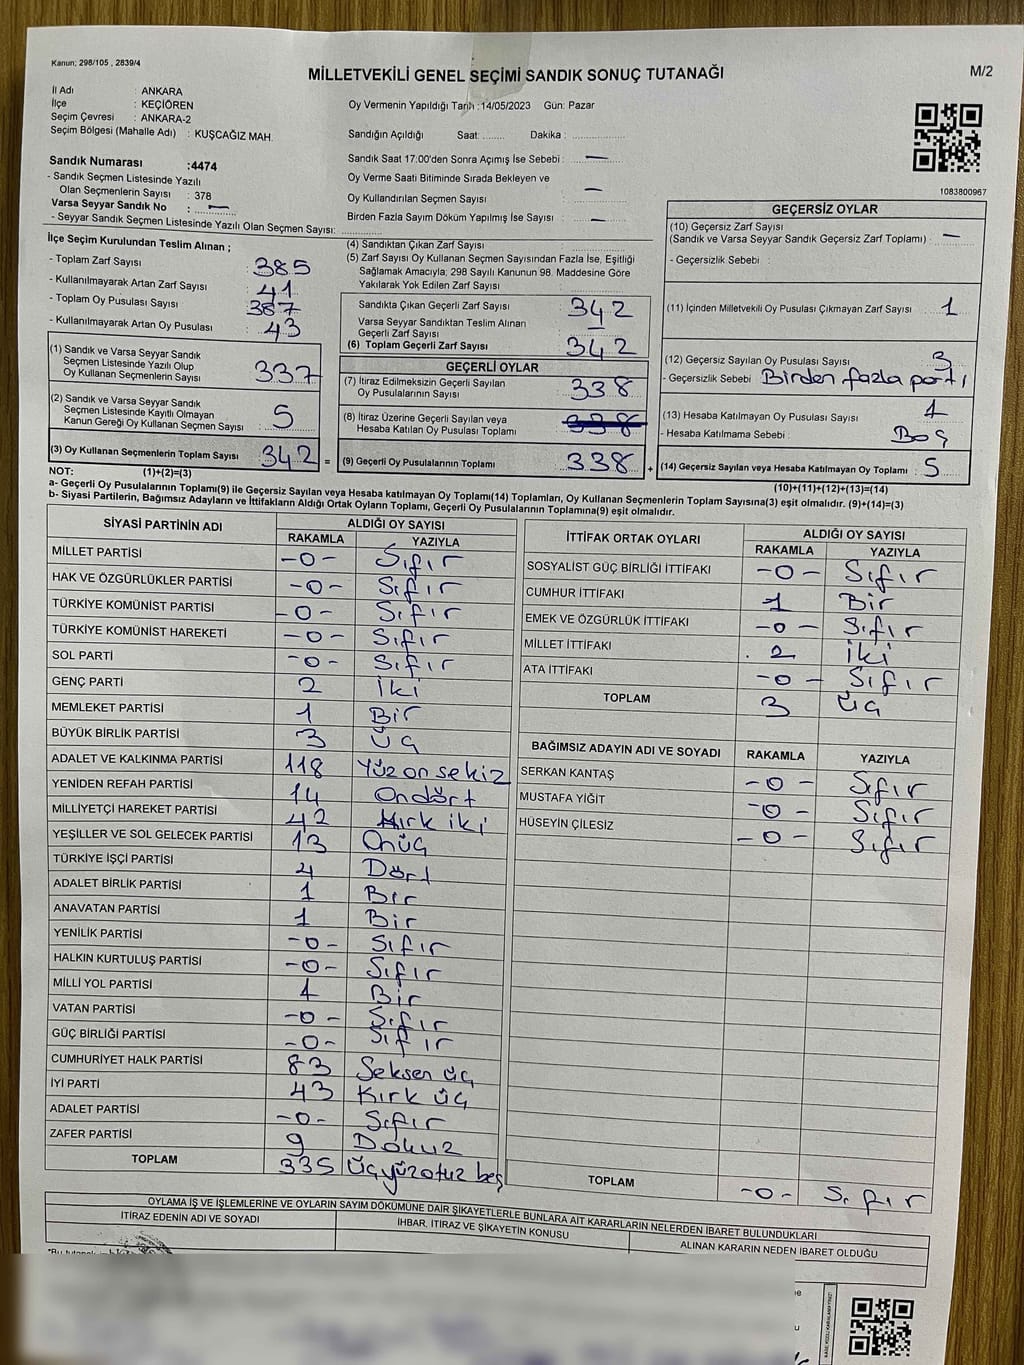 Kanun; 298/105 , 2839/4
MİLLETVEKİLİ GENEL SEÇİMİ SANDIK SONUÇ TUTANAĞI
M/2
İl Adı : ANKARA
İlçe : KEÇİÖREN
Seçim Çevresi : ANKARA-2
Seçim Bölgesi (Mahalle Adı) : KUŞCAĞIZ MAH.
Sandık Numarası :4474
- Sandık Seçmen Listesinde Yazılı
Olan Seçmenlerin Sayısı : 378
Varsa Seyyar Sandık No : —
- Seyyar Sandık Seçmen Listesinde Yazılı Olan Seçmen Sayısı: ..............
Oy Vermenin Yapıldığı Tarih :14/05/2023 Gün: Pazar
Sandığın Açıldığı Saat: ....... Dakika : ..............
Sandık Saat 17:00'den Sonra Açımış İse Sebebi : —
Oy Verme Saati Bitiminde Sırada Bekleyen ve
Oy Kullandırılan Seçmen Sayısı —
Birden Fazla Sayım Döküm Yapılmış İse Sayısı : —
1083800967
İlçe Seçim Kurulundan Teslim Alınan ;
- Toplam Zarf Sayısı : 385
- Kullanılmayarak Artan Zarf Sayısı : 41
- Toplam Oy Pusulası Sayısı : 387
- Kullanılmayarak Artan Oy Pusulası : 43
(1) Sandık ve Varsa Seyyar Sandık
Seçmen Listesinde Yazılı Olup
Oy Kullanan Seçmenlerin Sayısı : 337
(2) Sandık ve Varsa Seyyar Sandık
Seçmen Listesinde Kayıtlı Olmayan
Kanun Gereği Oy Kullanan Seçmen Sayısı : 5
(3) Oy Kullanan Seçmenlerin Toplam Sayısı : 342 =
(4) Sandıktan Çıkan Zarf Sayısı :
(5) Zarf Sayısı Oy Kullanan Seçmen Sayısından Fazla İse, Eşitliği
Sağlamak Amacıyla; 298 Sayılı Kanunun 98. Maddesine Göre
Yakılarak Yok Edilen Zarf Sayısı :
Sandıkta Çıkan Geçerli Zarf Sayısı : 342
Varsa Seyyar Sandıktan Teslim Alınan
Geçerli Zarf Sayısı : —
(6) Toplam Geçerli Zarf Sayısı : 342
GEÇERLİ OYLAR
(7) İtiraz Edilmeksizin Geçerli Sayılan
Oy Pusulalarının Sayısı : 338
(8) İtiraz Üzerine Geçerli Sayılan veya
Hesaba Katılan Oy Pusulası Toplamı : 338
(9) Geçerli Oy Pusulalarının Toplamı : 338 +
GEÇERSİZ OYLAR
(10) Geçersiz Zarf Sayısı
(Sandık ve Varsa Seyyar Sandık Geçersiz Zarf Toplamı) : —
- Geçersizlik Sebebi :
(11) İçinden Milletvekili Oy Pusulası Çıkmayan Zarf Sayısı : 1
(12) Geçersiz Sayılan Oy Pusulası Sayısı : 3
- Geçersizlik Sebebi : Birden fazla parti
(13) Hesaba Katılmayan Oy Pusulası Sayısı : 1
- Hesaba Katılmama Sebebi : Boş
(14) Geçersiz Sayılan veya Hesaba Katılmayan Oy Toplamı : 5
NOT: (1)+(2)=(3)
(10)+(11)+(12)+(13)=(14)
a- Geçerli Oy Pusulalarının Toplamı(9) ile Geçersiz Sayılan veya Hesaba katılmayan Oy Toplamı(14) Toplamları, Oy Kullanan Seçmenlerin Toplam Sayısına(3) eşit olmalıdır. (9)+(14)=(3)
b- Siyasi Partilerin, Bağımsız Adayların ve İttifakların Aldığı Ortak Oyların Toplamı, Geçerli Oy Pusulalarının Toplamına(9) eşit olmalıdır.
SİYASİ PARTİNİN ADI ALDIĞI OY SAYISI
RAKAMLA YAZIYLA
MİLLET PARTİSİ -0- Sıfır
HAK VE ÖZGÜRLÜKLER PARTİSİ -0- Sıfır
TÜRKİYE KOMÜNİST PARTİSİ -0- Sıfır
TÜRKİYE KOMÜNİST HAREKETİ -0- Sıfır
SOL PARTİ -0- Sıfır
GENÇ PARTİ 2 iki
MEMLEKET PARTİSİ 1 Bir
BÜYÜK BİRLİK PARTİSİ 3 Üç
ADALET VE KALKINMA PARTİSİ 118 Yüz on sekiz
YENİDEN REFAH PARTİSİ 14 Ondört
MİLLİYETÇİ HAREKET PARTİSİ 42 Kırk iki
YEŞİLLER VE SOL GELECEK PARTİSİ 13 Onüç
TÜRKİYE İŞÇİ PARTİSİ 4 Dört
ADALET BİRLİK PARTİSİ 1 Bir
ANAVATAN PARTİSİ 1 Bir
YENİLİK PARTİSİ -0- Sıfır
HALKIN KURTULUŞ PARTİSİ -0- Sıfır
MİLLİ YOL PARTİSİ 1 Bir
VATAN PARTİSİ -0- Sıfır
GÜÇ BİRLİĞİ PARTİSİ -0- Sıfır
CUMHURİYET HALK PARTİSİ 83 Seksen üç
İYİ PARTİ 43 Kırk üç
ADALET PARTİSİ -0- Sıfır
ZAFER PARTİSİ 9 Dokuz
TOPLAM 335 üçyüzotuz beş
İTTİFAK ORTAK OYLARI ALDIĞI OY SAYISI
RAKAMLA YAZIYLA
SOSYALİST GÜÇ BİRLİĞİ İTTİFAKI -0- Sıfır
CUMHUR İTTİFAKI 1 Bir
EMEK VE ÖZGÜRLÜK İTTİFAKI -0- Sıfır
MİLLET İTTİFAKI 2 iki
ATA İTTİFAKI -0- Sıfır
TOPLAM 3 üç
BAĞIMSIZ ADAYIN ADI VE SOYADI RAKAMLA YAZIYLA
SERKAN KANTAŞ -0- Sıfır
MUSTAFA YİĞİT -0- Sıfır
HÜSEYİN ÇİLESİZ -0- Sıfır
TOPLAM -0- Sıfır
OYLAMA İŞ VE İŞLEMLERİNE VE OYLARIN SAYIM DÖKÜMÜNE DAİR ŞİKAYETLERLE BUNLARA AİT KARARLARIN NELERDEN İBARET BULUNDUKLARI
İTİRAZ EDENİN ADI VE SOYADI İHBAR, İTİRAZ VE ŞİKAYETİN KONUSU ALINAN KARARIN NEDEN İBARET OLDUĞU